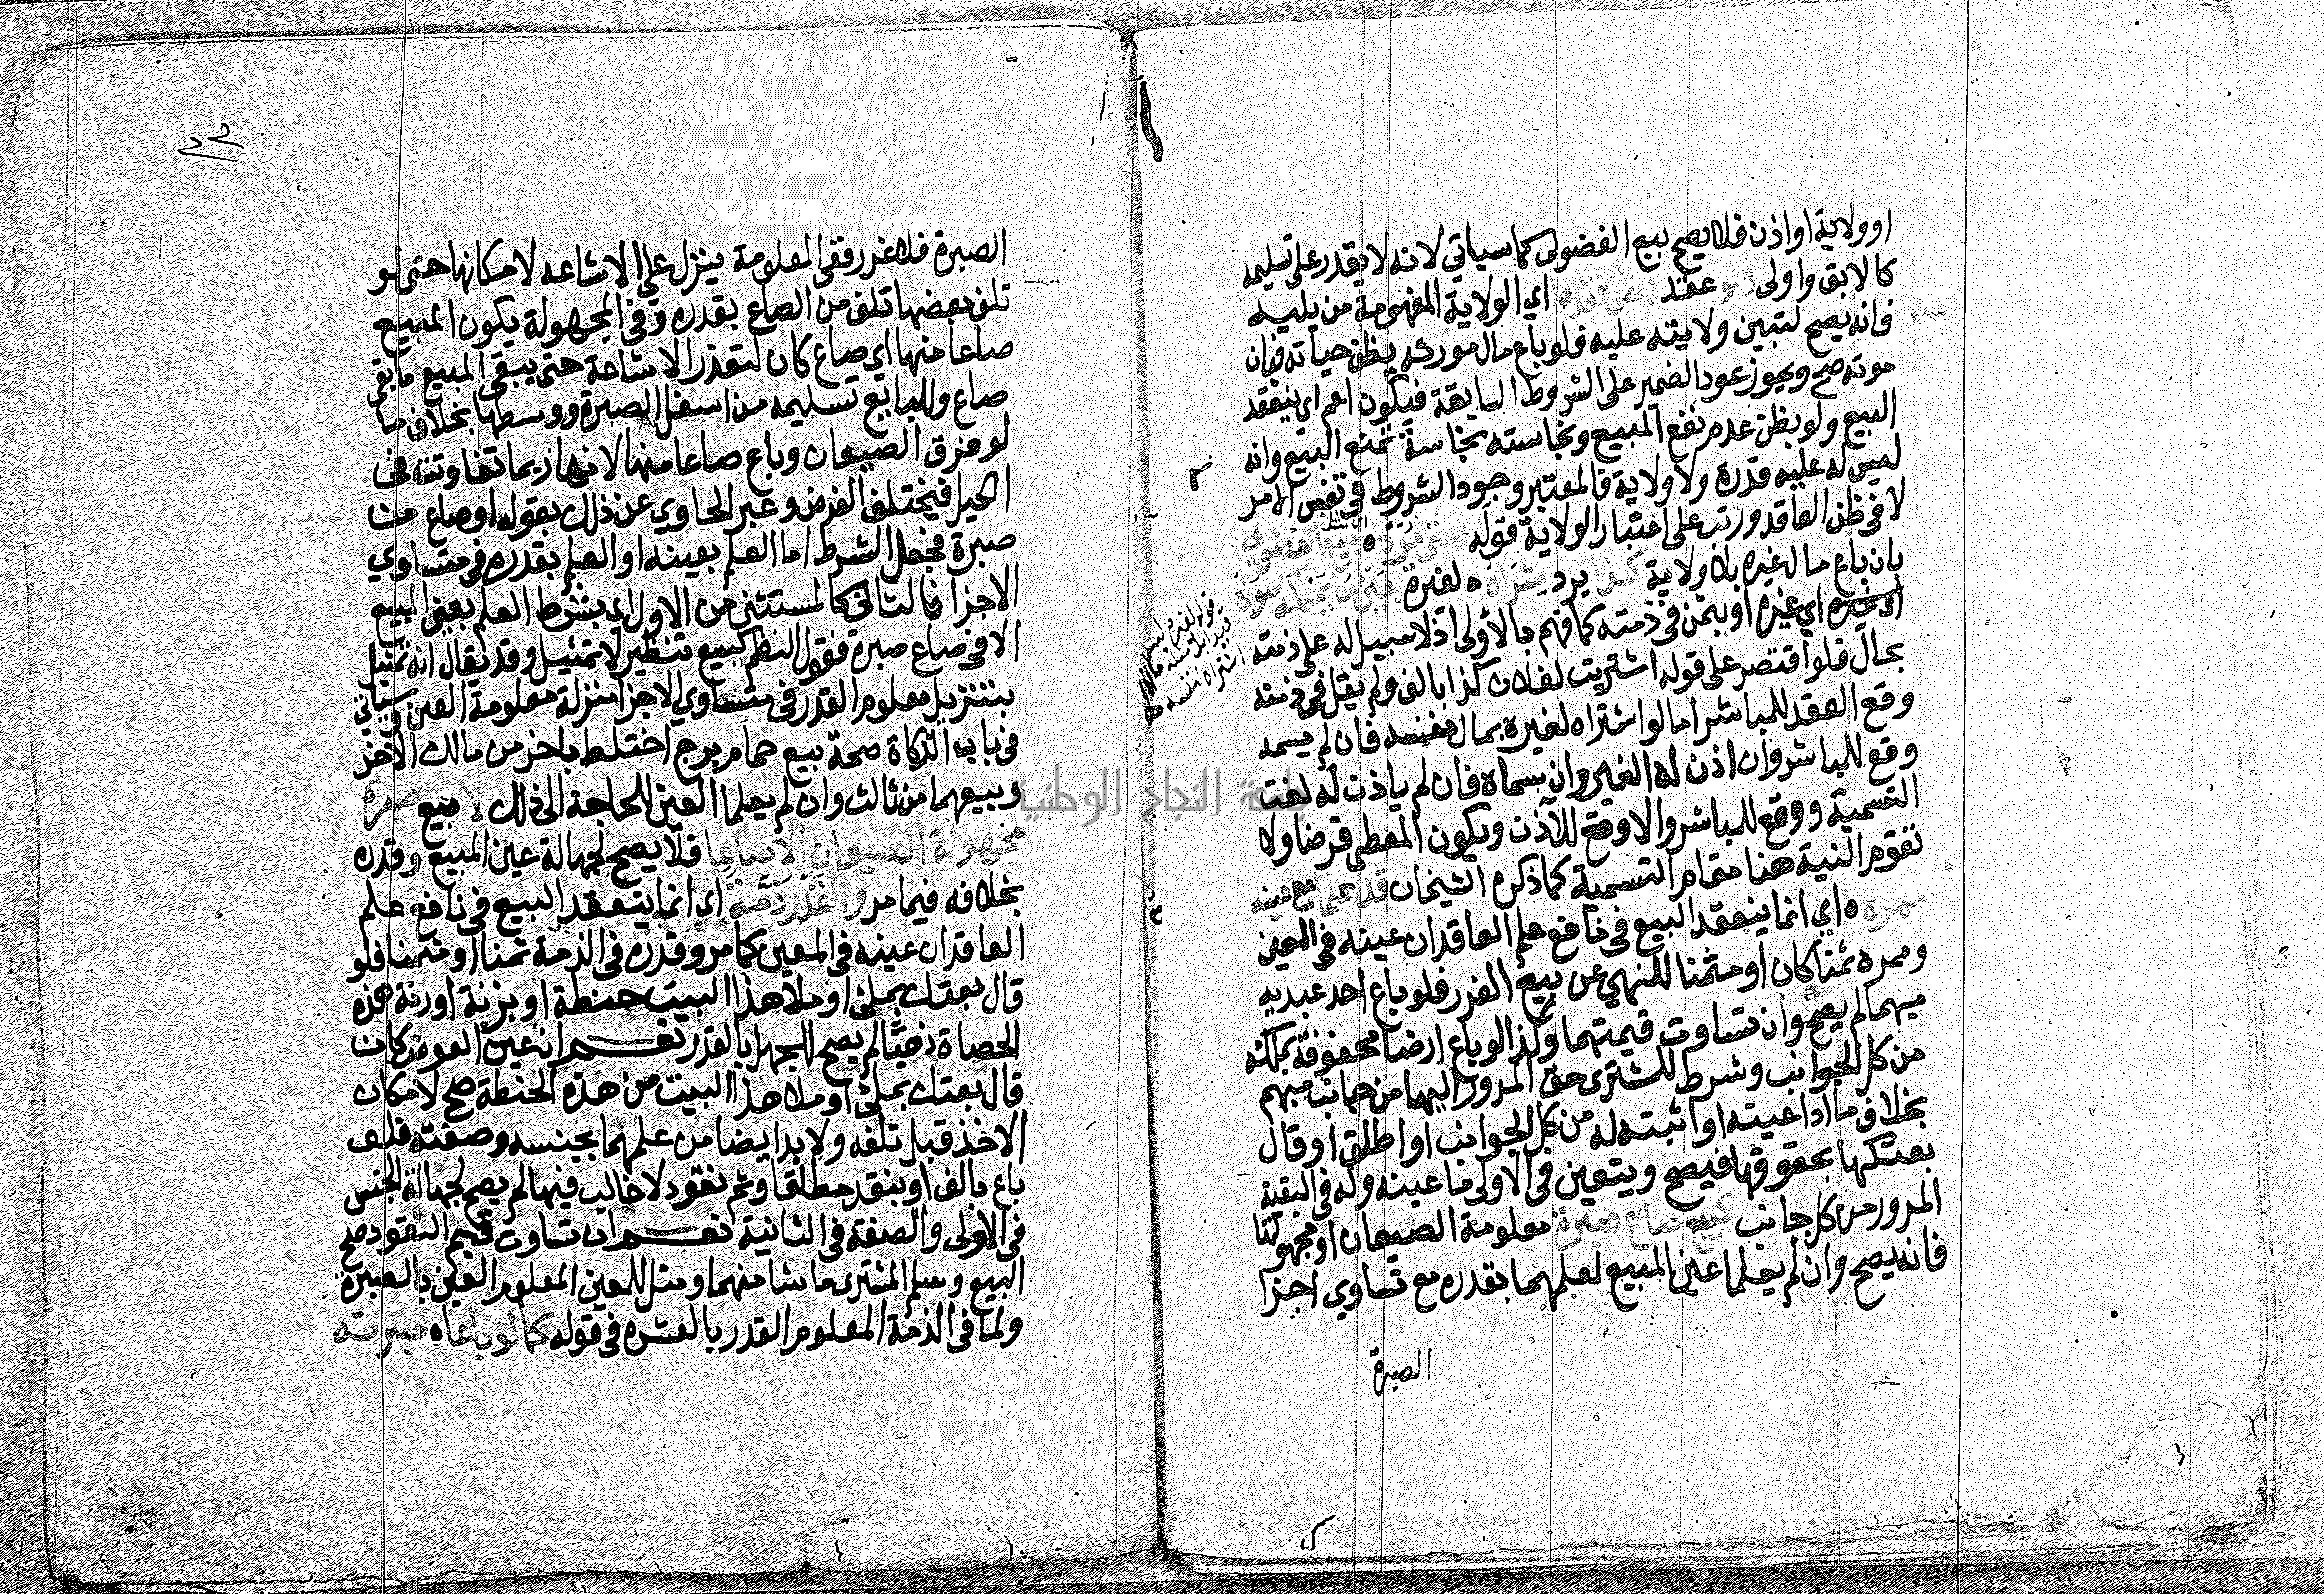 او ولاية او اذن فلا يصح بيع الفضولى كما سياتي لانه لا يقدر على تسليمه
كالابق واولى ولو عقد بظن فقده اي الولاية المفهومة من يليه
فانه يصح لتبين ولايته عليه فلو باع مال مورثه يظن حياته فبان
موته صح ويجوز عود الضمير على الشروط السابقة فيكون اعم اي ينعقد
البيع ولو بظن عدم نفع المبيع ونجاسته نجاسة تمنع البيع وانه
ليس له عليه قدرة ولا ولاية فالمعتبر وجود الشروط فى نفس الامر
لا فى ظن العاقد ورتب على اعتبار الولاية قوله حتى ترد بيع فضولى
بان باع مال غيره بلا ولاية كذا يرد شراه لغيره بعين
اي غيره او بثمن فى ذمته كما فهم بالأولى اذ لا سبيل له على ذمته
بحال فلو اقتصر على قوله اشتريت لفلان كذا بالف ولم يقل فى ذمته
وقع العقد للمباشر اما لو اشتراه لغيره بمال نفسه فان لم يسمه
وقع للمباشر وان اذن له الغير وان سماه فان لم ياذن له لغت
التسمية ووقع للمباشر والا وقع للآذن ويكون المعطى قرضا ولا
تقوم النية هنا مقام التسمية كما ذكره الشيخان قد علما مع عينه
ممره اي انما ينعقد البيع فى نافع علم العاقدان عينه فى المعين
وممره ثمنا كان او مثمنا للنهي عن بيع الغرر فلو باع احد عبديه
مبهما لم يصح وان تساوت قيمتهما وكذا لو باع ارضا محفوفة بملكه
من كل الجوانب وشرط للمشترى حق المرور اليها من جانب مبهم
بخلاف ما اذا عينه او اثبته له من كل الجوانب او اطلق او قال
بعتكها بحقوقها فيصح ويتعين فى الاولى ما عينه وله فى البقية
المرور من كل جانب كبيع صاع صبرة معلومة الصيعان او مجهولتها
فانه يصح وان لم يعلما عين المبيع لعلمهما بقدره مع تساوي اجزا
الصبرة
٢٢
الصبرة فلا غرر ففى المعلومة ينزل على الاشاعه لامكانها حتى لو
تلف بعضها تلف من الصاع بقدره وفى المجهولة يكون المبيع
صاعا منها اي صاع كان لتعذر الاشاعة حتى يبقى المبيع ما بقي
صاع وللبايع تسليمه من اسفل الصبرة ووسطها بخلاف ما
لو فرق الصيعان وباع صاعا منها لانها ربما تفاوتت فى
الكيل فيختلف الغرض وعبر الحاوي عن ذلك بقوله او صاع من
صبرة فجعل الشرط اما العلم بعينه او العلم بقدره فى متساوي
الاجزا فالثانى كالمستثنى من الاول اى يشرط العلم بعين المبيع
الا فى صاع صبرة فقول النظم كبيع تنظير لا تمثيل وقد يقال انه تمثيل
بتنزيل معلوم القدر فى متساوي الاجزا منزلة معلومة العين وسياتي
فى باب الذكاة صحة بيع حمام برج اختلط باخر من مالك الاخر
وبيعهما من ثالث وان لم يعلما العين للحاجة الى ذلك لا مبيع صبرة
مجهولة الصيعان الا صاعا فلا يصح لجهالة عين المبيع وقدره
بخلافه فيما مر والقدر ذمة اى انما ينعقد البيع فى نافع علم
العاقدان عينه فى المعين كما مر وقدره فى الذمة ثمنا او مثمنا فلو
قال بعتك بملئ او ملا هذا البيت حنطة او بزنة او زنة هذه
الحصاة ذهبا لم يصح للجهل بالقدر نعم ان عين العوض كان
قال بعتك بملئ او ملا هذا البيت من هذه الحنطة صح لامكان
الاخذ قبل تلفه ولا بد ايضا من علمهما بجنسه وصفته فلو
باع بالف او بنقد مطلقا وثم نقود لا غالب فيها لم يصح لجهالة الجنس
فى الاولى والصفة فى الثانية نعم ان تساوت قيم النقود صح
البيع وسلم المشترى ما شا منهما ومثل للمعين المعلوم العين بالصبرة
ولما فى الذمة المعلوم القدر بالعشره فى قوله كما لو باعاه صبرته